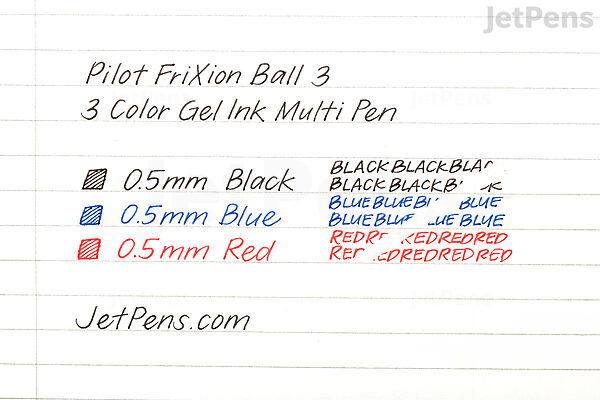 JetPens
Pilot FriXion Ball 3
3 Color Gel Ink Multi Pen
0.5mm Black
BLACKBLACKBLA
BLACKBLACKB
0.5mm Blue
BLUEBLUEB BLUE
BLUEBLU UEBLUE
0.5mm Red
REDR EDREDRED
RE DREDREDRED
JetPens.com